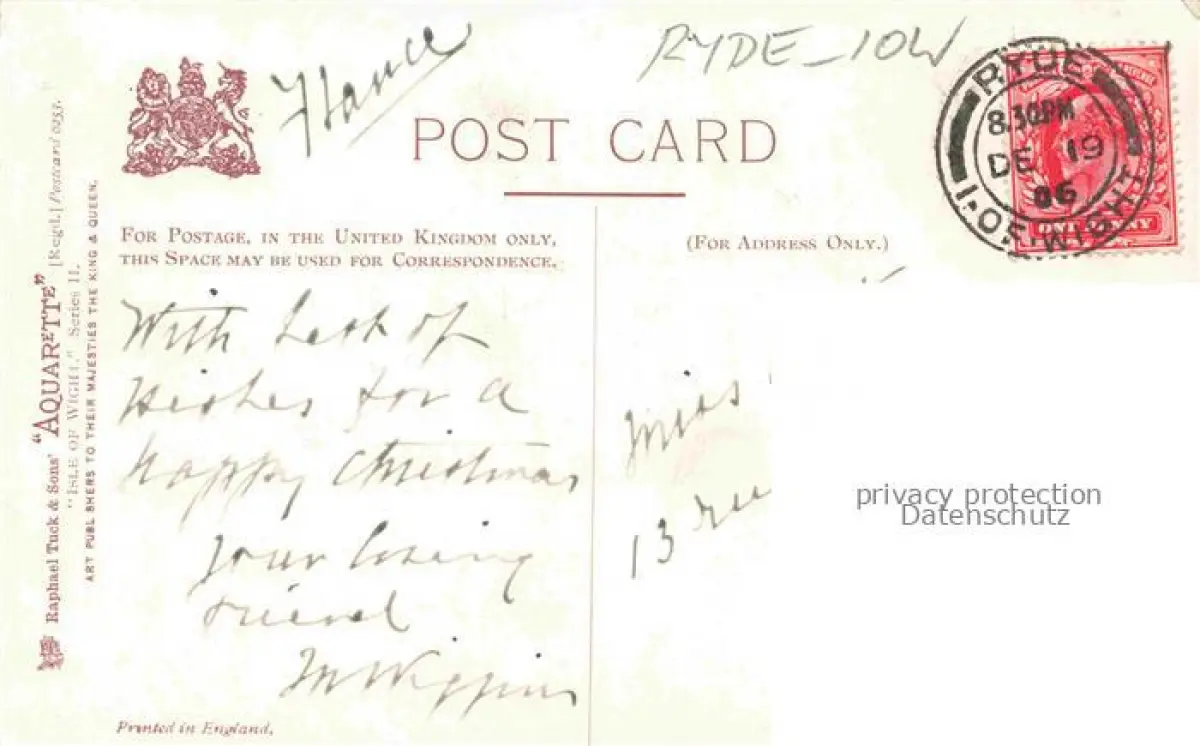 France
RYDE - IOW
POST CARD
RYDE
8.30PM
DE 19
06
I. OF. WIGHT
FOR POSTAGE, IN THE UNITED KINGDOM ONLY,
THIS SPACE MAY BE USED FOR CORRESPONDENCE.
(FOR ADDRESS ONLY.)
With best of
wishes for a
happy Christmas
your loving
friend
M Wiggins
Miss
13 rue
privacy protection
Datenschutz
Raphael Tuck & Sons' "AQUARETTE" [Regd.] Postcard 0253.
"ISLE OF WIGHT." Series II.
ART PUBLISHERS TO THEIR MAJESTIES THE KING & QUEEN.
Printed in England.